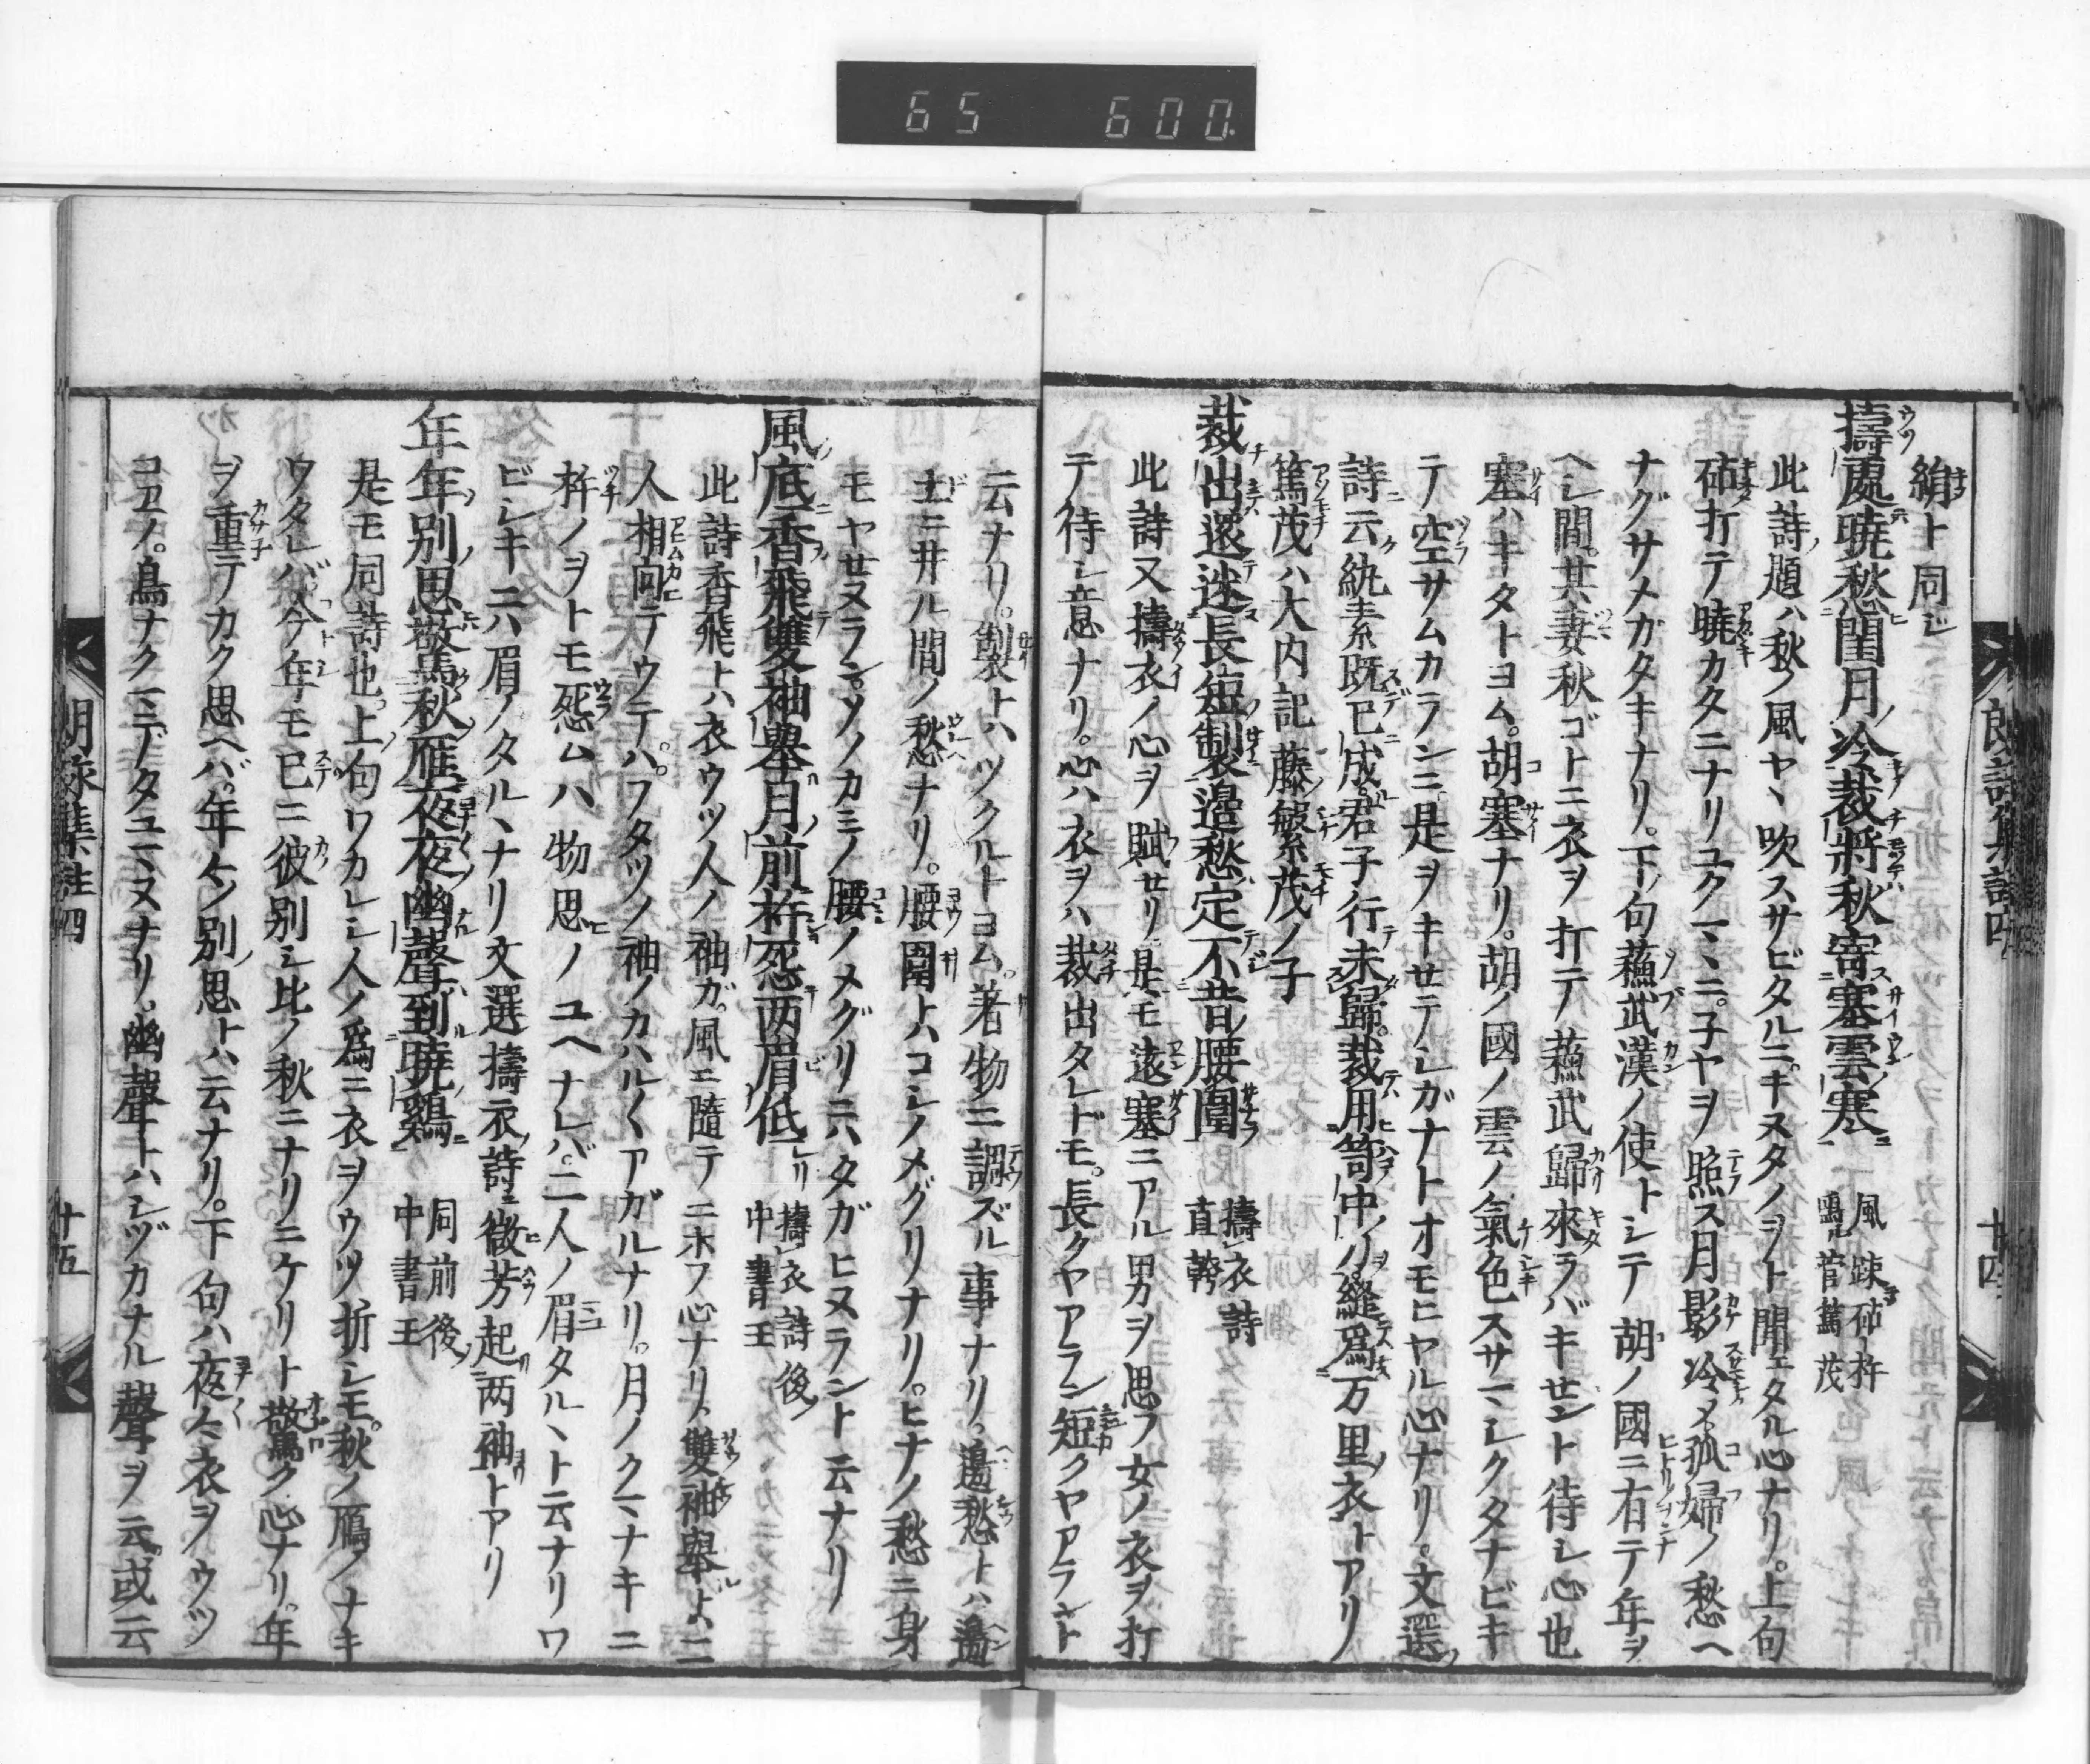 65 600.
絹ト同シ
擣處曉愁閨月冷裁將秋寄塞雲寒 風疎砧杵鳴 菅篤茂
此詩ノ題ハ秋ノ風ヤヽ吹スサビタルニ。キヌタノヲト聞エタル心ナリ。上句
砧打テ曉カタニナリユクマヽニ。子ヤヲ照ス月影冷メ孤婦ノ愁ヘ
ナグサメガタキナリ。下ノ句蘓武漢ノ使トシテ胡ノ國ニ有テ年ヲ
ヘシ間。其妻秋ゴトニ衣ヲ打テ蘓武歸來ラバキセント待シ心也
塞ハキタトヨム。胡塞ナリ。胡ノ國ノ雲ノ氣色スサマシクタナビキ
テ空サムカラシニ是ヲキセテシガナトオモヒヤル心ナリ。文選ノ
詩云紈素既已成。君子行未歸。裁用笥中刀。縫爲万里衣トアリ
篤茂ハ大内記藤繁茂ノ子
裁出還迷長短製邉愁定不昔腰圍 擣衣詩 直幹
此詩又擣衣ノ心ヲ賦セリ是モ遠塞ニアル男ヲ思フ女ノ衣ヲ打
テ待シ意ナリ。心ハ衣ヲハ裁出タレドモ。長クヤアラン短クヤアラント
朗詠集註四 十四
云ナリ。製トハツクルトヨム。著物ニ調ズル事ナリ。邉愁トハ邉
土ニ井ル間ノ愁ナリ。腰圍トハコシノメグリナリ。ヒナノ愁ニ身
モヤセヌラン。ソノカミノ腰ノメグリニハタガヒヌラント云ナリ
風底香飛雙袖擧月前杵怨两眉低 擣衣詩後 中書王
此詩香飛トハ衣ウツ人ノ袖ガ。風ニ隨テニホフ心ナリ。雙袖擧ハ二
人相向テウテバ。フタツノ袖ノカハル〱アガルナリ。月ノクマナキニ
杵ノヲトモ怨ムハ物思ノユヘナレバ。二人ノ眉タルヽト云ナリワ
ビシキニハ眉ノタルヽナリ文選擣衣詩ニ微芳起两袖トアリ
年年別思驚秋雁夜夜幽聲到曉鷄 同前後 中書王
是モ同詩也。上ノ句ワカレシ人ノ爲ニ衣ヲウツ折シモ。秋ノ鴈ノナキ
ワタレバ。今年モ已ニ彼別シ比ノ秋ニナリニケリト驚ク心ナリ。年
ヲ重テカク思ヘバ。年ケン別思トハ云ナリ。下句ハ夜々衣ヲウツ
コヱノ。鳥ナクマデタユマヌナリ。幽聲トハシヅカナル聲ヲ云。或云
朗詠集註四 十五